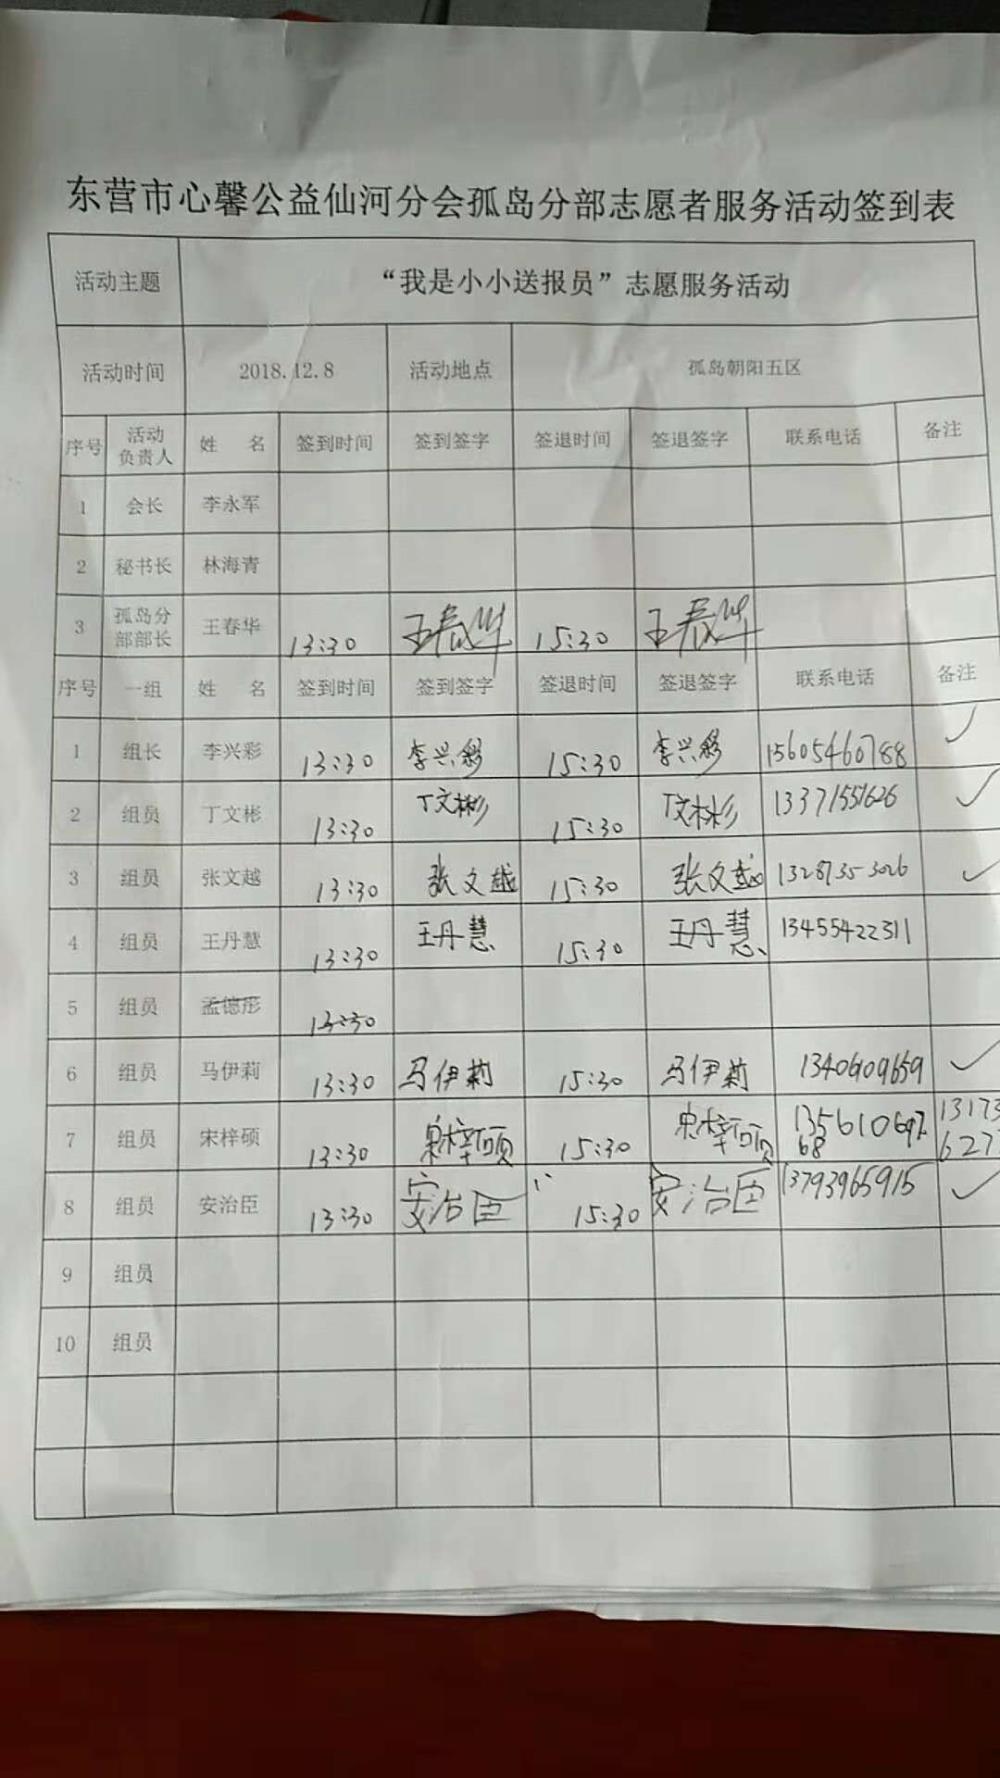 东营市心馨公益仙河分会孤岛分部志愿者服务活动签到表
活动主题 “我是小小送报员”志愿服务活动
活动时间 2018.12.8 活动地点 孤岛朝阳五区
序号 活动负责人 姓 名 签到时间 签到签字 签退时间 签退签字 联系电话 备注
1 会长 李永军
2 秘书长 林海青
3 孤岛分部部长 王春华 13:30 王春华 15:30 王春华
序号 一组 姓 名 签到时间 签到签字 签退时间 签退签字 联系电话 备注
1 组长 李兴彩 13:30 李兴彩 15:30 李兴彩 15605460788 ✓
2 组员 丁文彬 13:30 丁文彬 15:30 丁文彬 13371551626 ✓
3 组员 张文越 13:30 张文越 15:30 张文越 13287353026 ✓
4 组员 王丹慧 13:30 王丹慧 15:30 王丹慧 13455422311
5 组员 孟德彤 13:30
6 组员 马伊莉 13:30 马伊莉 15:30 马伊莉 ✓
7 组员 宋梓硕 13:30 宋梓硕 15:30 宋梓硕 13173
8 组员 安治臣 13:30 安治臣 15:30 安治臣 13793965915 ✓
9 组员
10 组员